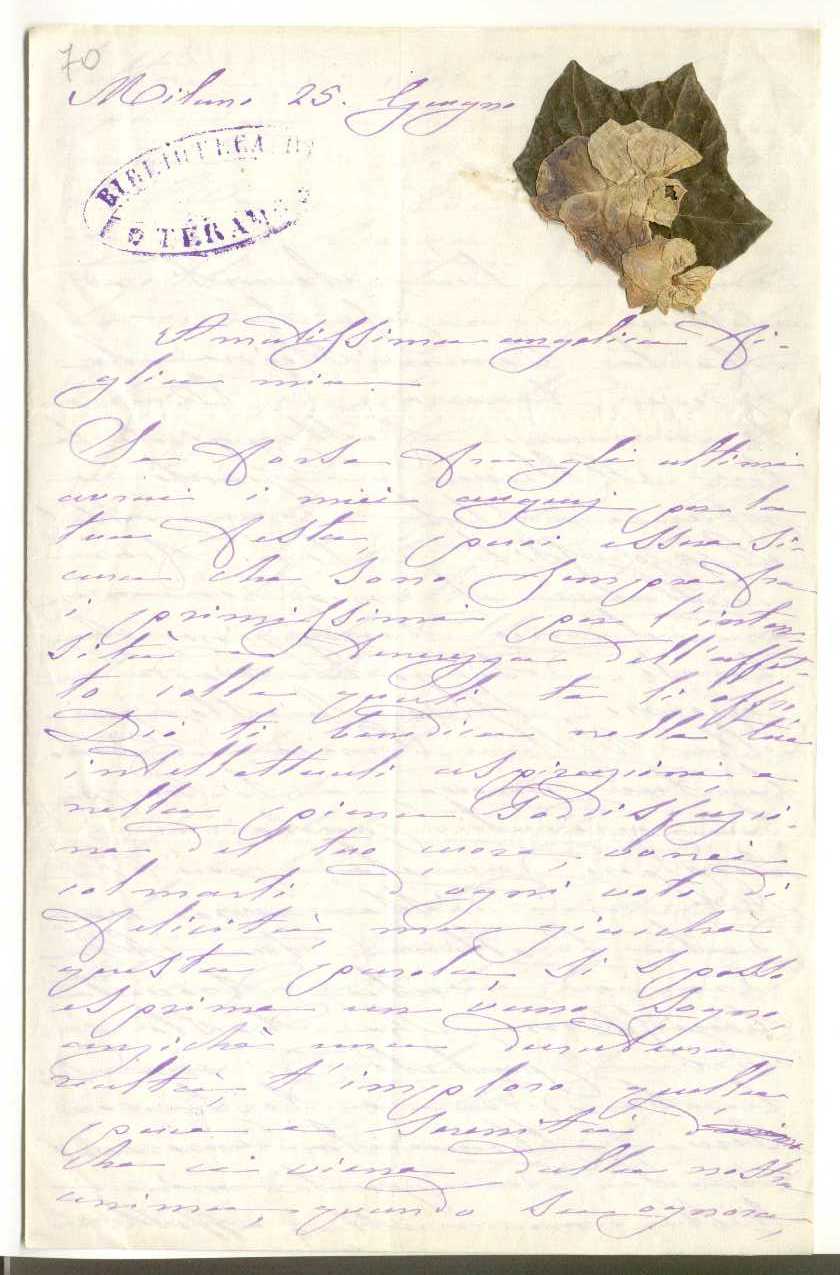 70
Milano 25. Giugno
BIBLIOTECA DI
TERAMO
Amatissima angelica Fi-
glia mia
Se forse fra gli ultimi
avrai i miei augurj per la
tua festa, puoi essere si-
cura che sono sempre fra
i primissimi per l'inten
sità e tenerezza dell'affet-
to colle quali te li offro
Dio ti benedica nelle tue
intellettuali aspirazioni, e
nella piena soddisfazio-
ne del tuo cuore, vorrei
colmarti d'ogni voto di
felicità, ma giacchè
questa parola si spesso
esprime un vano sogno,
anzichè una duratura
realtà, t'imploro quella
pace e serenità
che ci viene dalla nostra
anima, quando sa ognora,